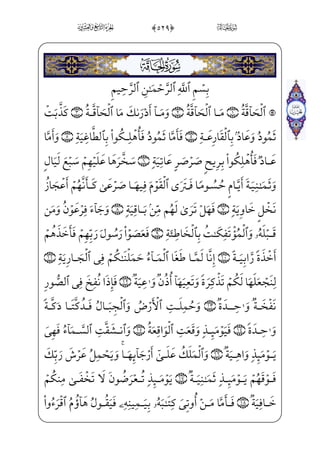 سُورَةُ الحَاقَّةِ ﴿٥٢٩﴾ الجُزْءُ التَّاسِعُ وَالعِشْرُونَ
سُورَةُ الحَاقَّةِ
بِسۡمِ ٱللَّهِ ٱلرَّحۡمَٰنِ ٱلرَّحِيمِ
ٱلۡحَآقَّةُ ١ مَا ٱلۡحَآقَّةُ ٢ وَمَآ أَدۡرَىٰكَ مَا ٱلۡحَآقَّةُ ٣ كَذَّبَتۡ
ثَمُودُ وَعَادُۢ بِٱلۡقَارِعَةِ ٤ فَأَمَّا ثَمُودُ فَأُهۡلِكُواْ بِٱلطَّاغِيَةِ ٥ وَأَمَّا
عَادٞ فَأُهۡلِكُواْ بِرِيحٖ صَرۡصَرٍ عَاتِيَةٖ ٦ سَخَّرَهَا عَلَيۡهِمۡ سَبۡعَ لَيَالٖ
وَثَمَٰنِيَةَ أَيَّامٍ حُسُومٗا فَتَرَى ٱلۡقَوۡمَ فِيهَا صَرۡعَىٰ كَأَنَّهُمۡ أَعۡجَازُ
نَخۡلٍ خَاوِيَةٖ ٧ فَهَلۡ تَرَىٰ لَهُم مِّنۢ بَاقِيَةٖ ٨ وَجَآءَ فِرۡعَوۡنُ وَمَن
قَبۡلَهُۥ وَٱلۡمُؤۡتَفِكَٰتُ بِٱلۡخَاطِئَةِ ٩ فَعَصَوۡاْ رَسُولَ رَبِّهِمۡ فَأَخَذَهُمۡ
أَخۡذَةٗ رَّابِيَةً ١٠ إِنَّا لَمَّا طَغَا ٱلۡمَآءُ حَمَلۡنَٰكُمۡ فِي ٱلۡجَارِيَةِ ١١
لِنَجۡعَلَهَا لَكُمۡ تَذۡكِرَةٗ وَتَعِيَهَآ أُذُنٞ وَٰعِيَةٞ ١٢ فَإِذَا نُفِخَ فِي ٱلصُّورِ
نَفۡخَةٞ وَٰحِدَةٞ ١٣ وَحُمِلَتِ ٱلۡأَرۡضُ وَٱلۡجِبَالُ فَدُكَّتَا دَكَّةٗ
وَٰحِدَةٗ ١٤ فَيَوۡمَئِذٖ وَقَعَتِ ٱلۡوَاقِعَةُ ١٥ وَٱنشَقَّتِ ٱلسَّمَآءُ فَهِيَ
يَوۡمَئِذٖ وَاهِيَةٞ ١٦ وَٱلۡمَلَكُ عَلَىٰٓ أَرۡجَآئِهَاۚ وَيَحۡمِلُ عَرۡشَ رَبِّكَ
فَوۡقَهُمۡ يَوۡمَئِذٖ ثَمَٰنِيَةٞ ١٧ يَوۡمَئِذٖ تُعۡرَضُونَ لَا تَخۡفَىٰ مِنكُمۡ
خَافِيَةٞ ١٨ فَأَمَّا مَنۡ أُوتِيَ كِتَٰبَهُۥ بِيَمِينِهِۦ فَيَقُولُ هَآؤُمُ ٱقۡرَءُواْ